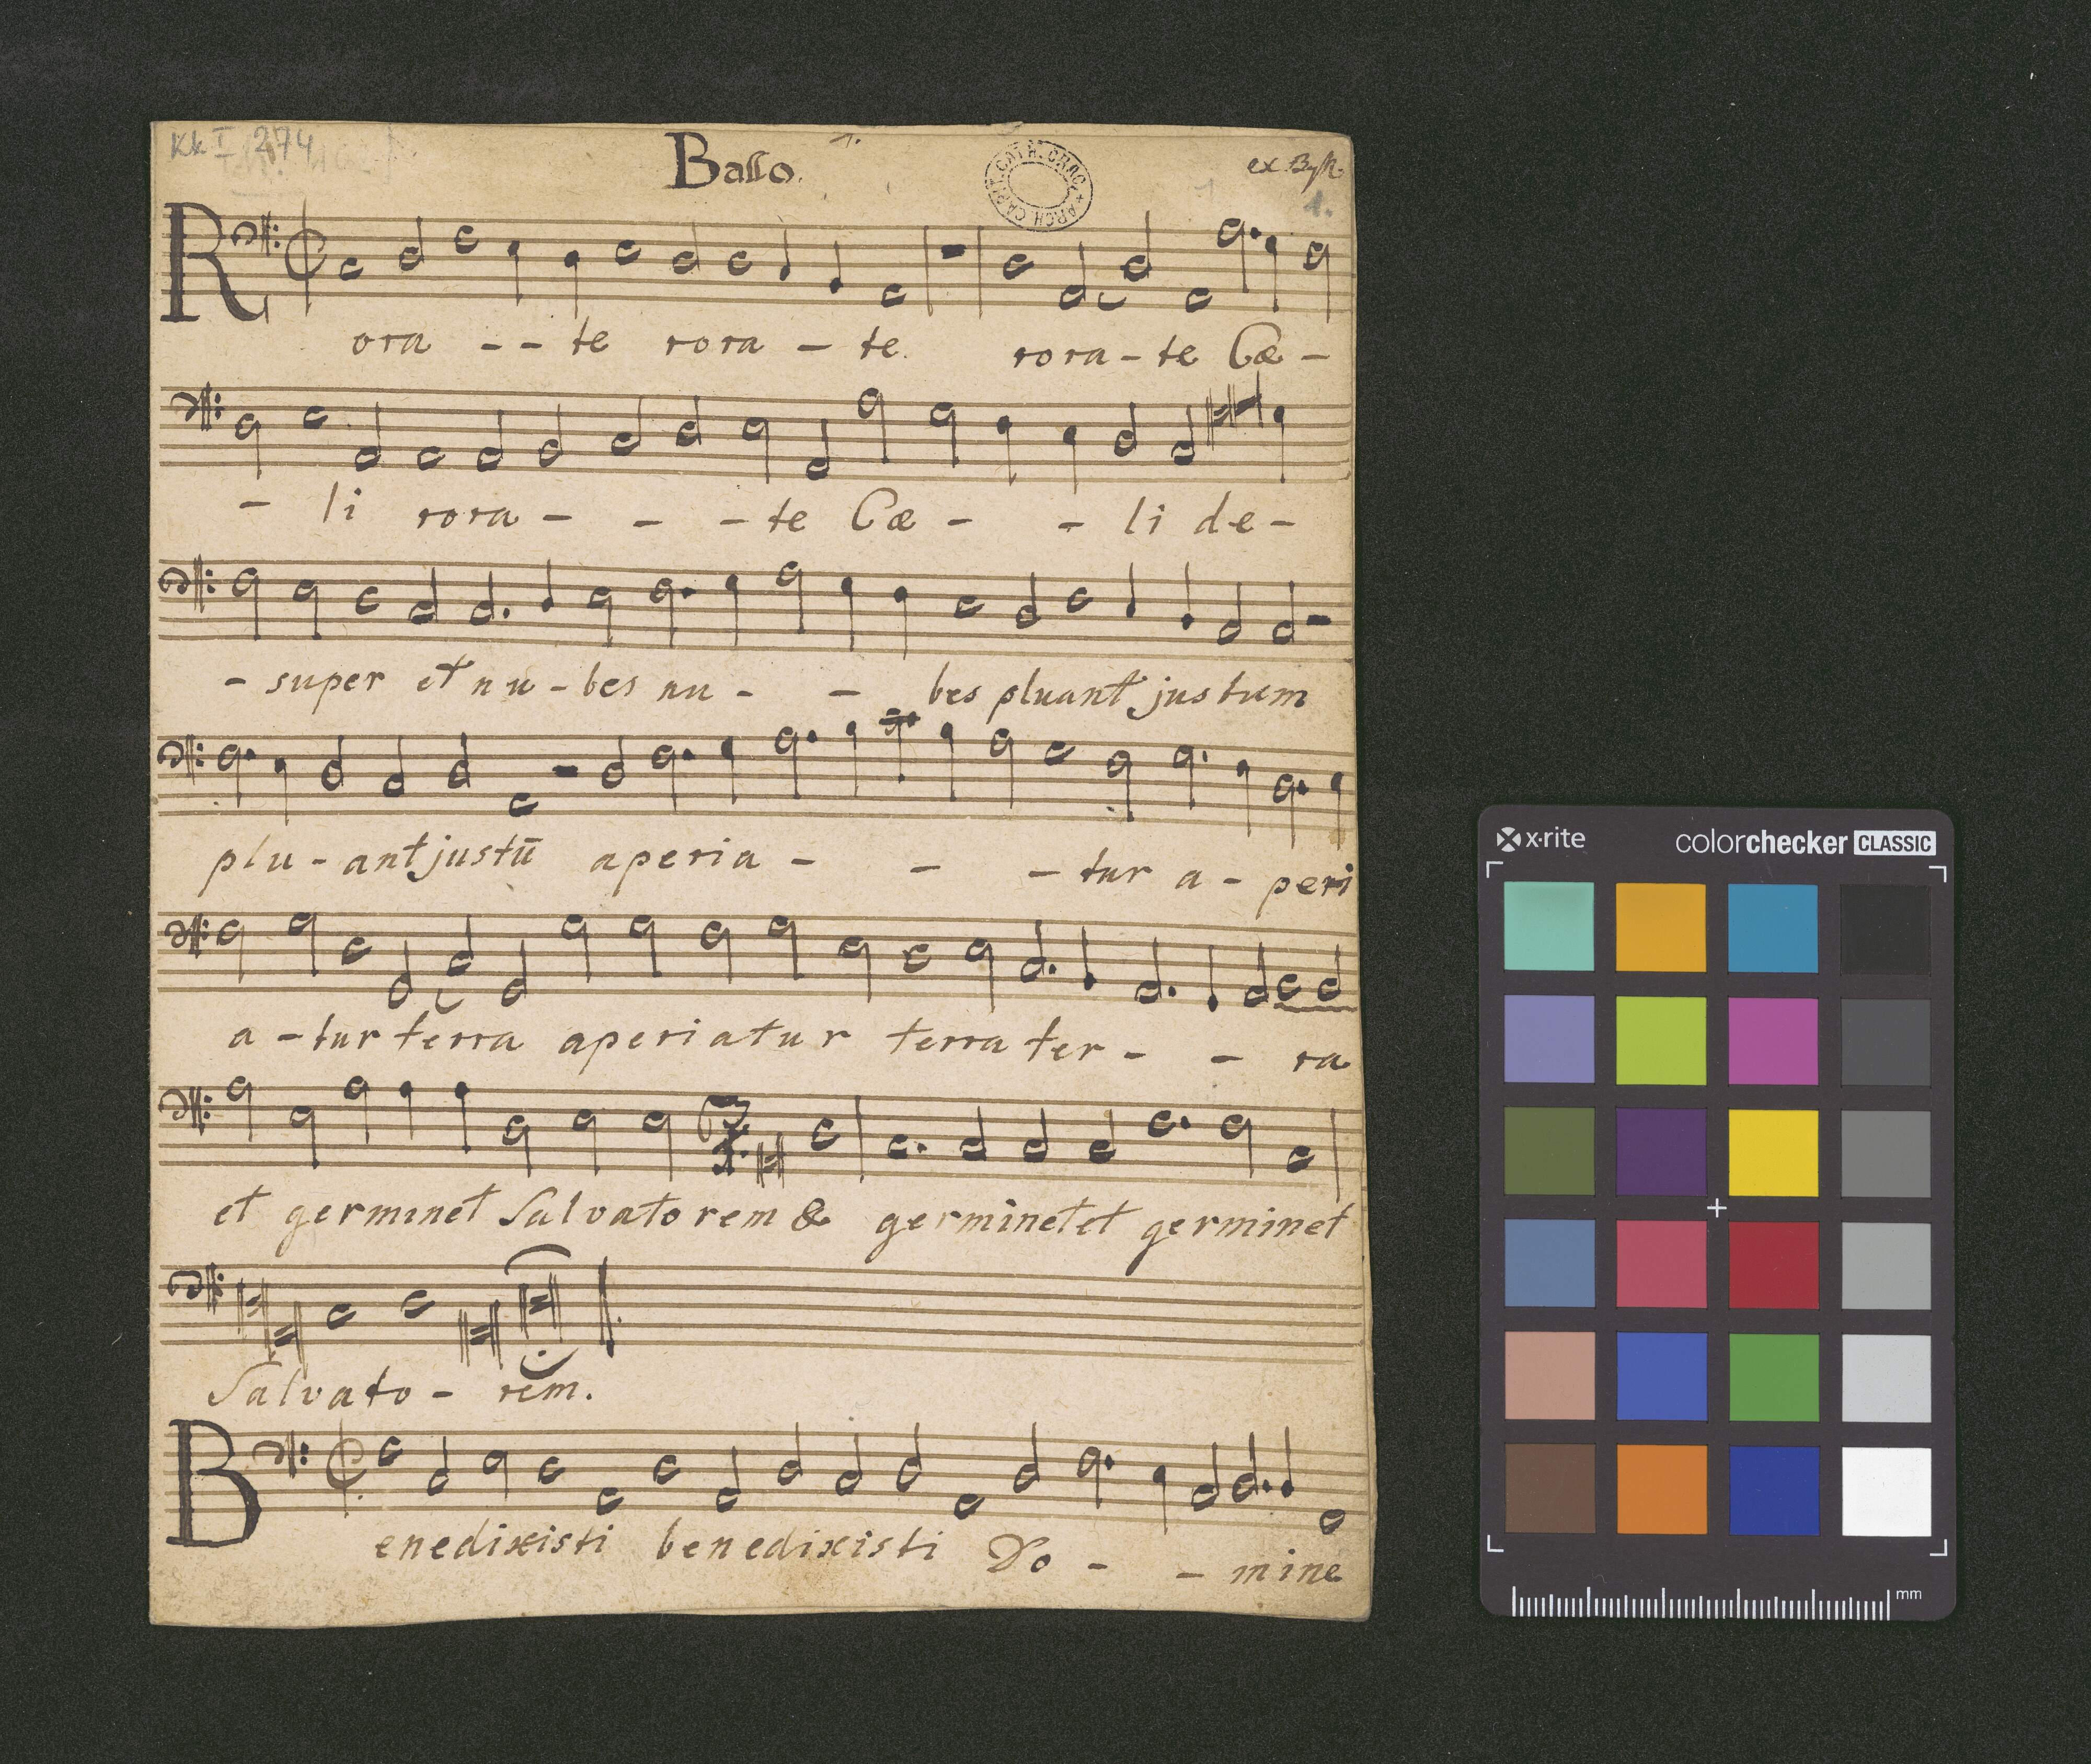 Kk I 274
Basso.
ARCH. CAPIT. CATH. CRAC.
1.
Rora - - te rora - te. rora - te Cæ -
- li rora - - - te Cæ - - li de -
- super et nu - bes nu - - bes pluant justum
plu - ant justū aperia - - - tur a - peri
a - tur terra aperiatur terra ter - - ra
et germinet Salvatorem & germinet et germinet
Salvato - rem.
Benedixisti benedixisti Do - - mine
x·rite colorchecker CLASSIC
mm